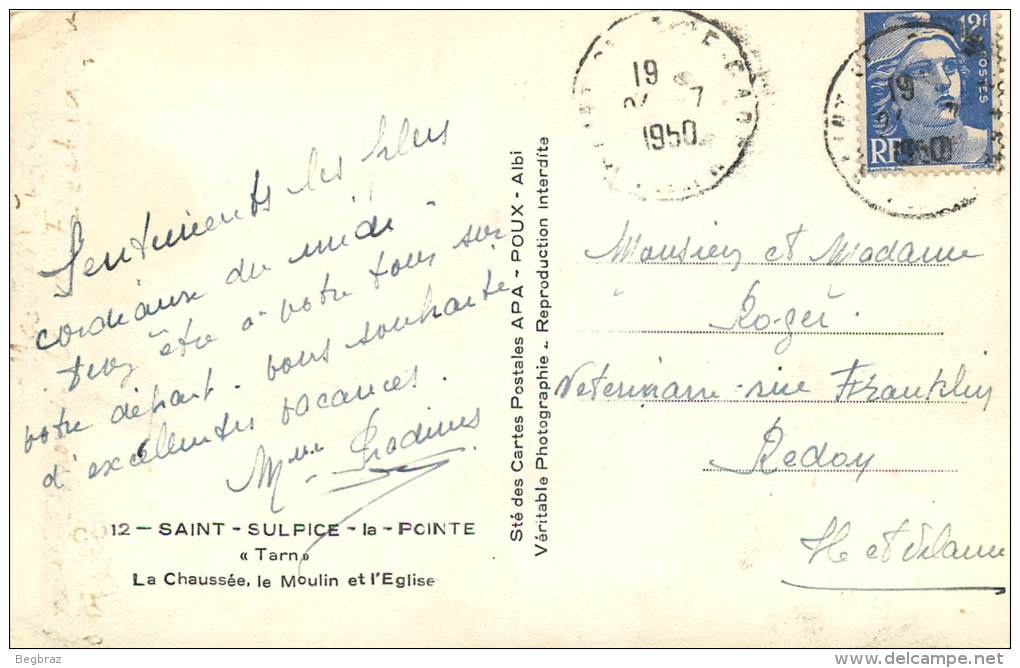 Sentiments les plus
cordiaux du midi -
devez être à votre tour sur
votre départ - vous souhaite
d'excellentes vacances.
Mme
12 - SAINT - SULPICE - la - POINTE
« Tarn »
La Chaussée, le Moulin et l'Eglise
Sté des Cartes Postales APA - POUX - Albi
Véritable Photographie - Reproduction Interdite
19
7
1950
12f
POSTES
RF
19
1950
Monsieur et Madame
Roger.
Veterinaire - rue Franklin
Redon
Ille et Vilaine
Begbraz
delcampe.net